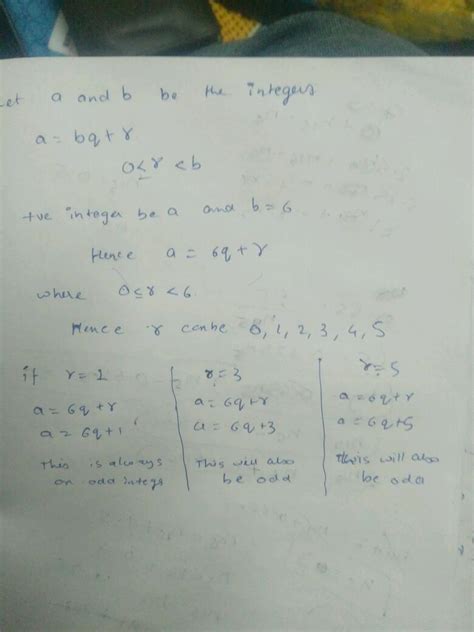 Let a and b be the integers
a = bq + r
0 ≤ r < b
+ve integer be a and b = 6
Hence a = 6q + r
where 0 ≤ r < 6
Hence r can be 0, 1, 2, 3, 4, 5
if r = 1
a = 6q + r
a = 6q + 1
This is always
an odd integs
r = 3
a = 6q + r
a = 6q + 3
This will also
be odd
r = 5
a = 6q + r
a = 6q + 5
this will also
be odd